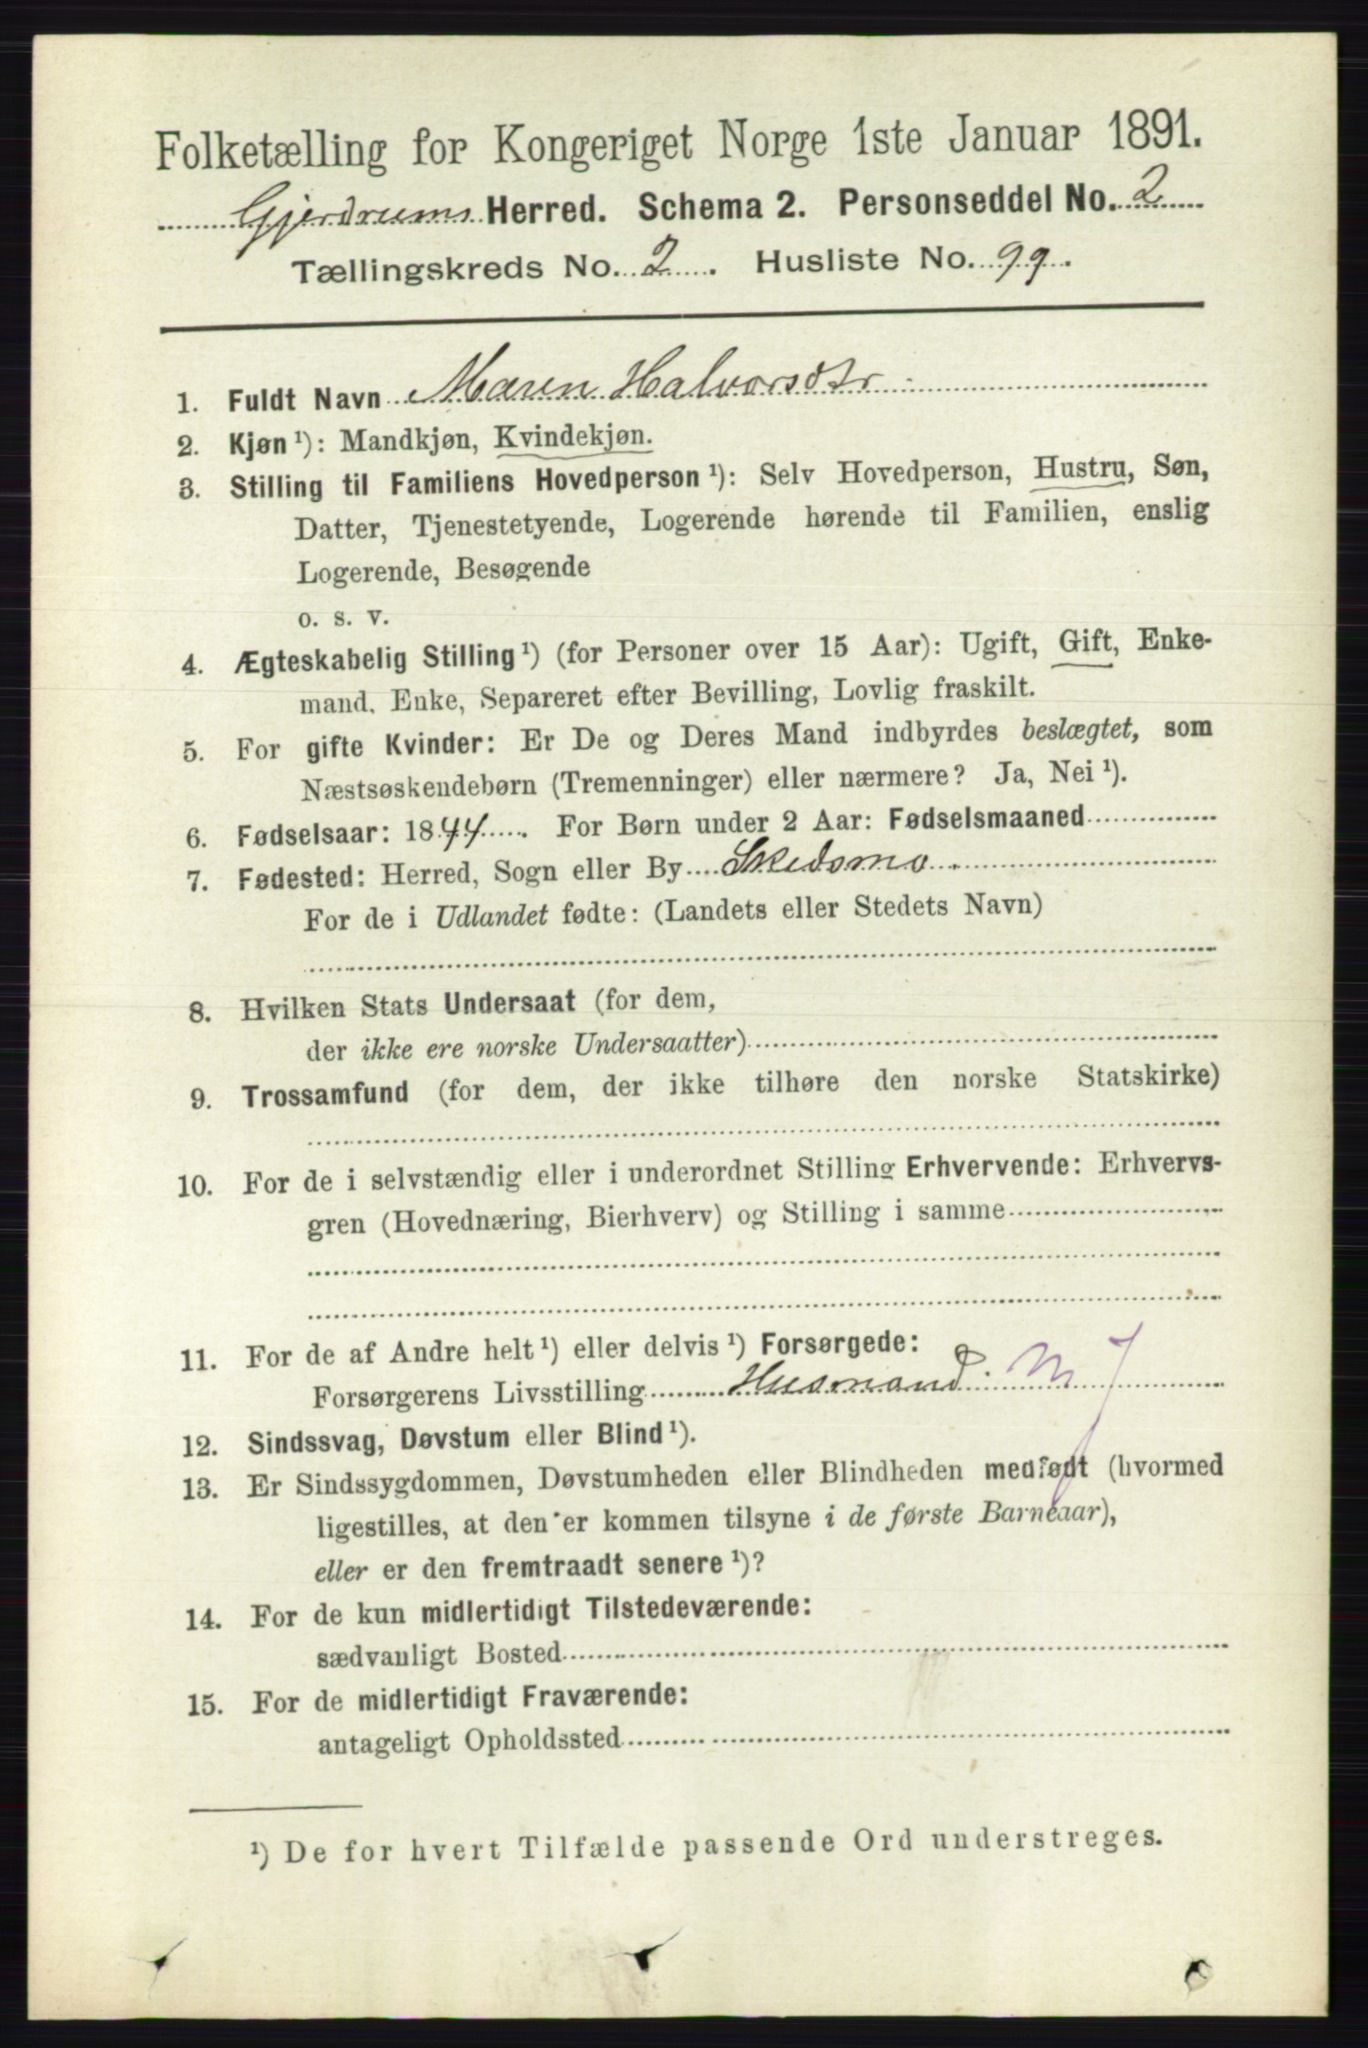 Folketælling for Kongeriget Norge 1ste Januar 1891.
Gjerdrums Herred. Schema 2. Personseddel No. 2
Tællingskreds No. 2. Husliste No. 99.
1. Fuldt Navn Maren Halvorsdtr
2. Kjøn ¹): Mandkjøn, Kvindekjøn.
3. Stilling til Familiens Hovedperson ¹): Selv Hovedperson, Hustru, Søn,
Datter, Tjenestetyende, Logerende hørende til Familien, enslig
Logerende, Besøgende
o. s. v.
4. Ægteskabelig Stilling ¹) (for Personer over 15 Aar): Ugift, Gift, Enke-
mand, Enke, Separeret efter Bevilling, Lovlig fraskilt.
5. For gifte Kvinder: Er De og Deres Mand indbyrdes beslægtet, som
Næstsøskendebørn (Tremenninger) eller nærmere? Ja, Nei ¹).
6. Fødselsaar: 1844. For Børn under 2 Aar: Fødselsmaaned
7. Fødested: Herred, Sogn eller By Skedsmo
For de i Udlandet fødte: (Landets eller Stedets Navn)
8. Hvilken Stats Undersaat (for dem,
der ikke ere norske Undersaatter)
9. Trossamfund (for dem, der ikke tilhøre den norske Statskirke)
10. For de i selvstændig eller i underordnet Stilling Erhvervende: Erhvervs-
gren (Hovednæring, Bierhverv) og Stilling i samme
11. For de af Andre helt ¹) eller delvis ¹) Forsørgede:
Forsørgerens Livsstilling Husmand. M J
12. Sindssvag, Døvstum eller Blind ¹).
13. Er Sindssygdommen, Døvstumheden eller Blindheden medfødt (hvormed
ligestilles, at den er kommen tilsyne i de første Barneaar),
eller er den fremtraadt senere ¹)?
14. For de kun midlertidigt Tilstedeværende:
sædvanligt Bosted
15. For de midlertidigt Fraværende:
antageligt Opholdssted
¹) De for hvert Tilfælde passende Ord understreges.